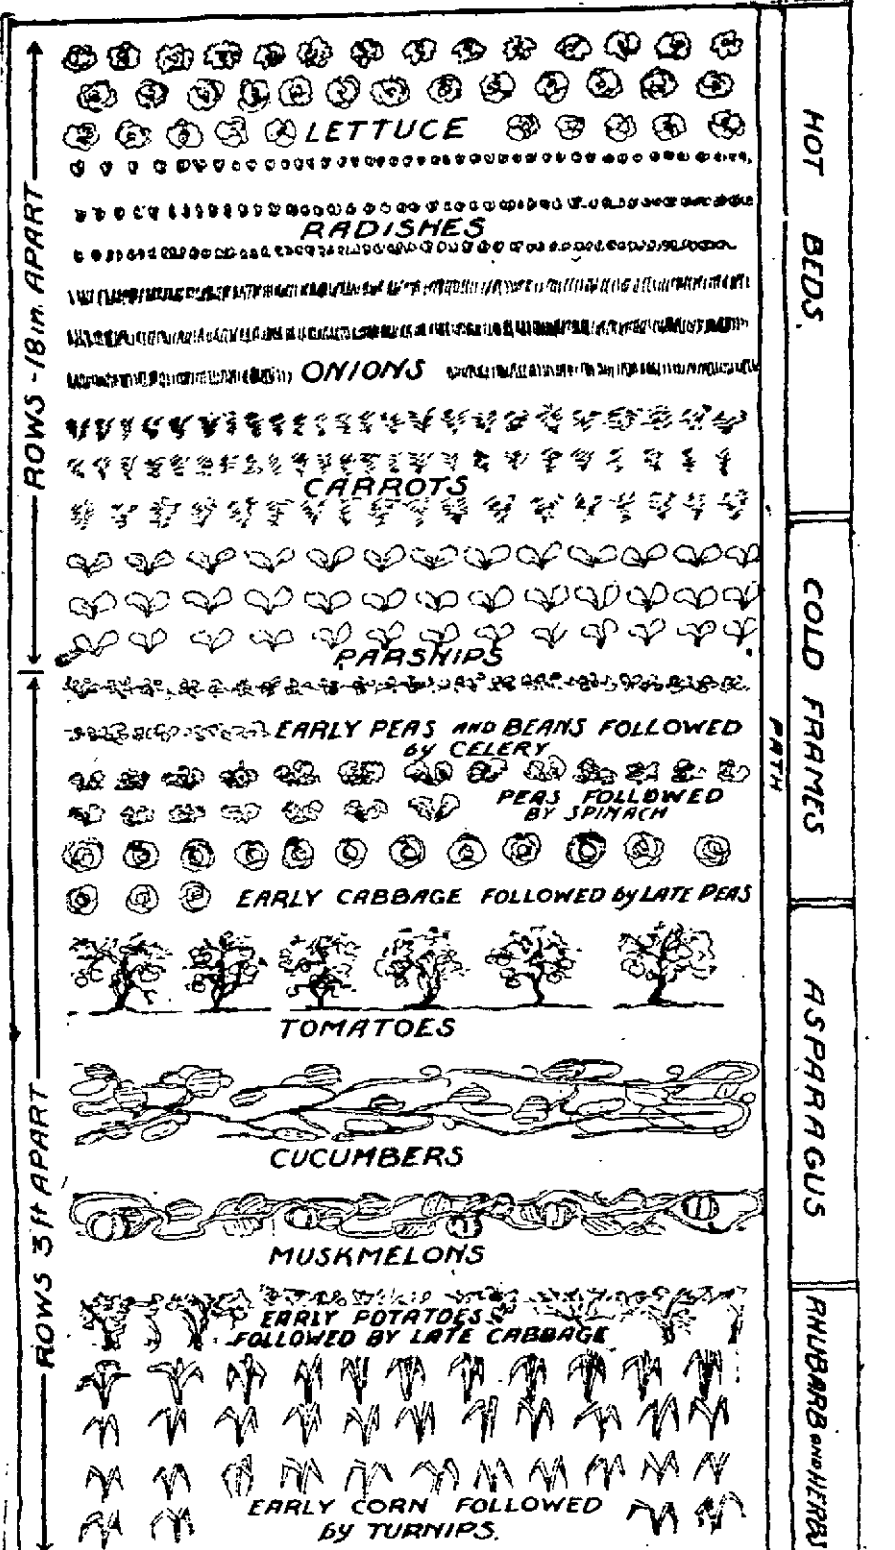 LETTUCE
RADISHES
ONIONS
CARROTS
PARSNIPS
EARLY PEAS AND BEANS FOLLOWED
by CELERY
PEAS FOLLOWED
BY SPINACH
EARLY CABBAGE FOLLOWED by LATE PEAS
TOMATOES
CUCUMBERS
MUSKMELONS
EARLY POTATOES
FOLLOWED BY LATE CABBAGE
EARLY CORN FOLLOWED
by TURNIPS.
ROWS - 18 in. APART
ROWS 3 ft APART
PATH
HOT BEDS.
COLD FRAMES
ASPARAGUS
RHUBARB AND HERBS